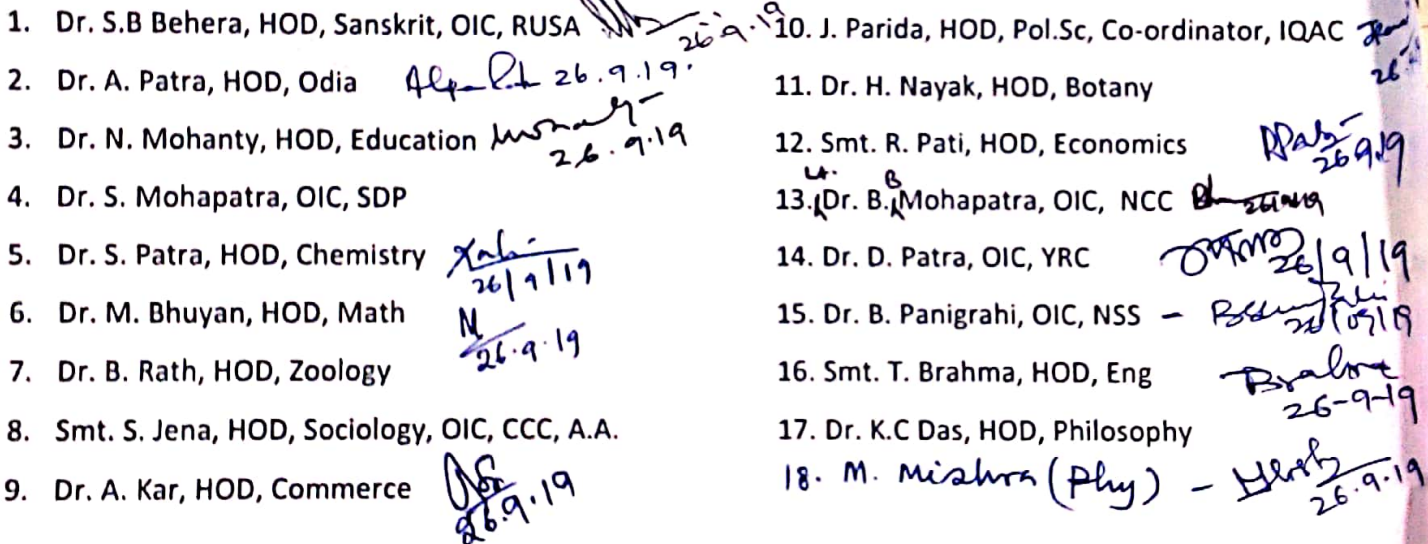 1. Dr. S.B Behera, HOD, Sanskrit, OIC, RUSA 26.9.19
2. Dr. A. Patra, HOD, Odia 26.9.19.
3. Dr. N. Mohanty, HOD, Education
26.9.19
4. Dr. S. Mohapatra, OIC, SDP
5. Dr. S. Patra, HOD, Chemistry
26/9/19
6. Dr. M. Bhuyan, HOD, Math
26.9.19
7. Dr. B. Rath, HOD, Zoology
8. Smt. S. Jena, HOD, Sociology, OIC, CCC, A.A.
9. Dr. A. Kar, HOD, Commerce
26.9.19
10. J. Parida, HOD, Pol.Sc, Co-ordinator, IQAC
26
11. Dr. H. Nayak, HOD, Botany
12. Smt. R. Pati, HOD, Economics
26.9.19
13. Lt. Dr. B. B Mohapatra, OIC, NCC
14. Dr. D. Patra, OIC, YRC 26/9/19
15. Dr. B. Panigrahi, OIC, NSS -
16. Smt. T. Brahma, HOD, Eng Brahma
26-9-19
17. Dr. K.C Das, HOD, Philosophy
18. M. Mishra (Phy) -
26.9.19